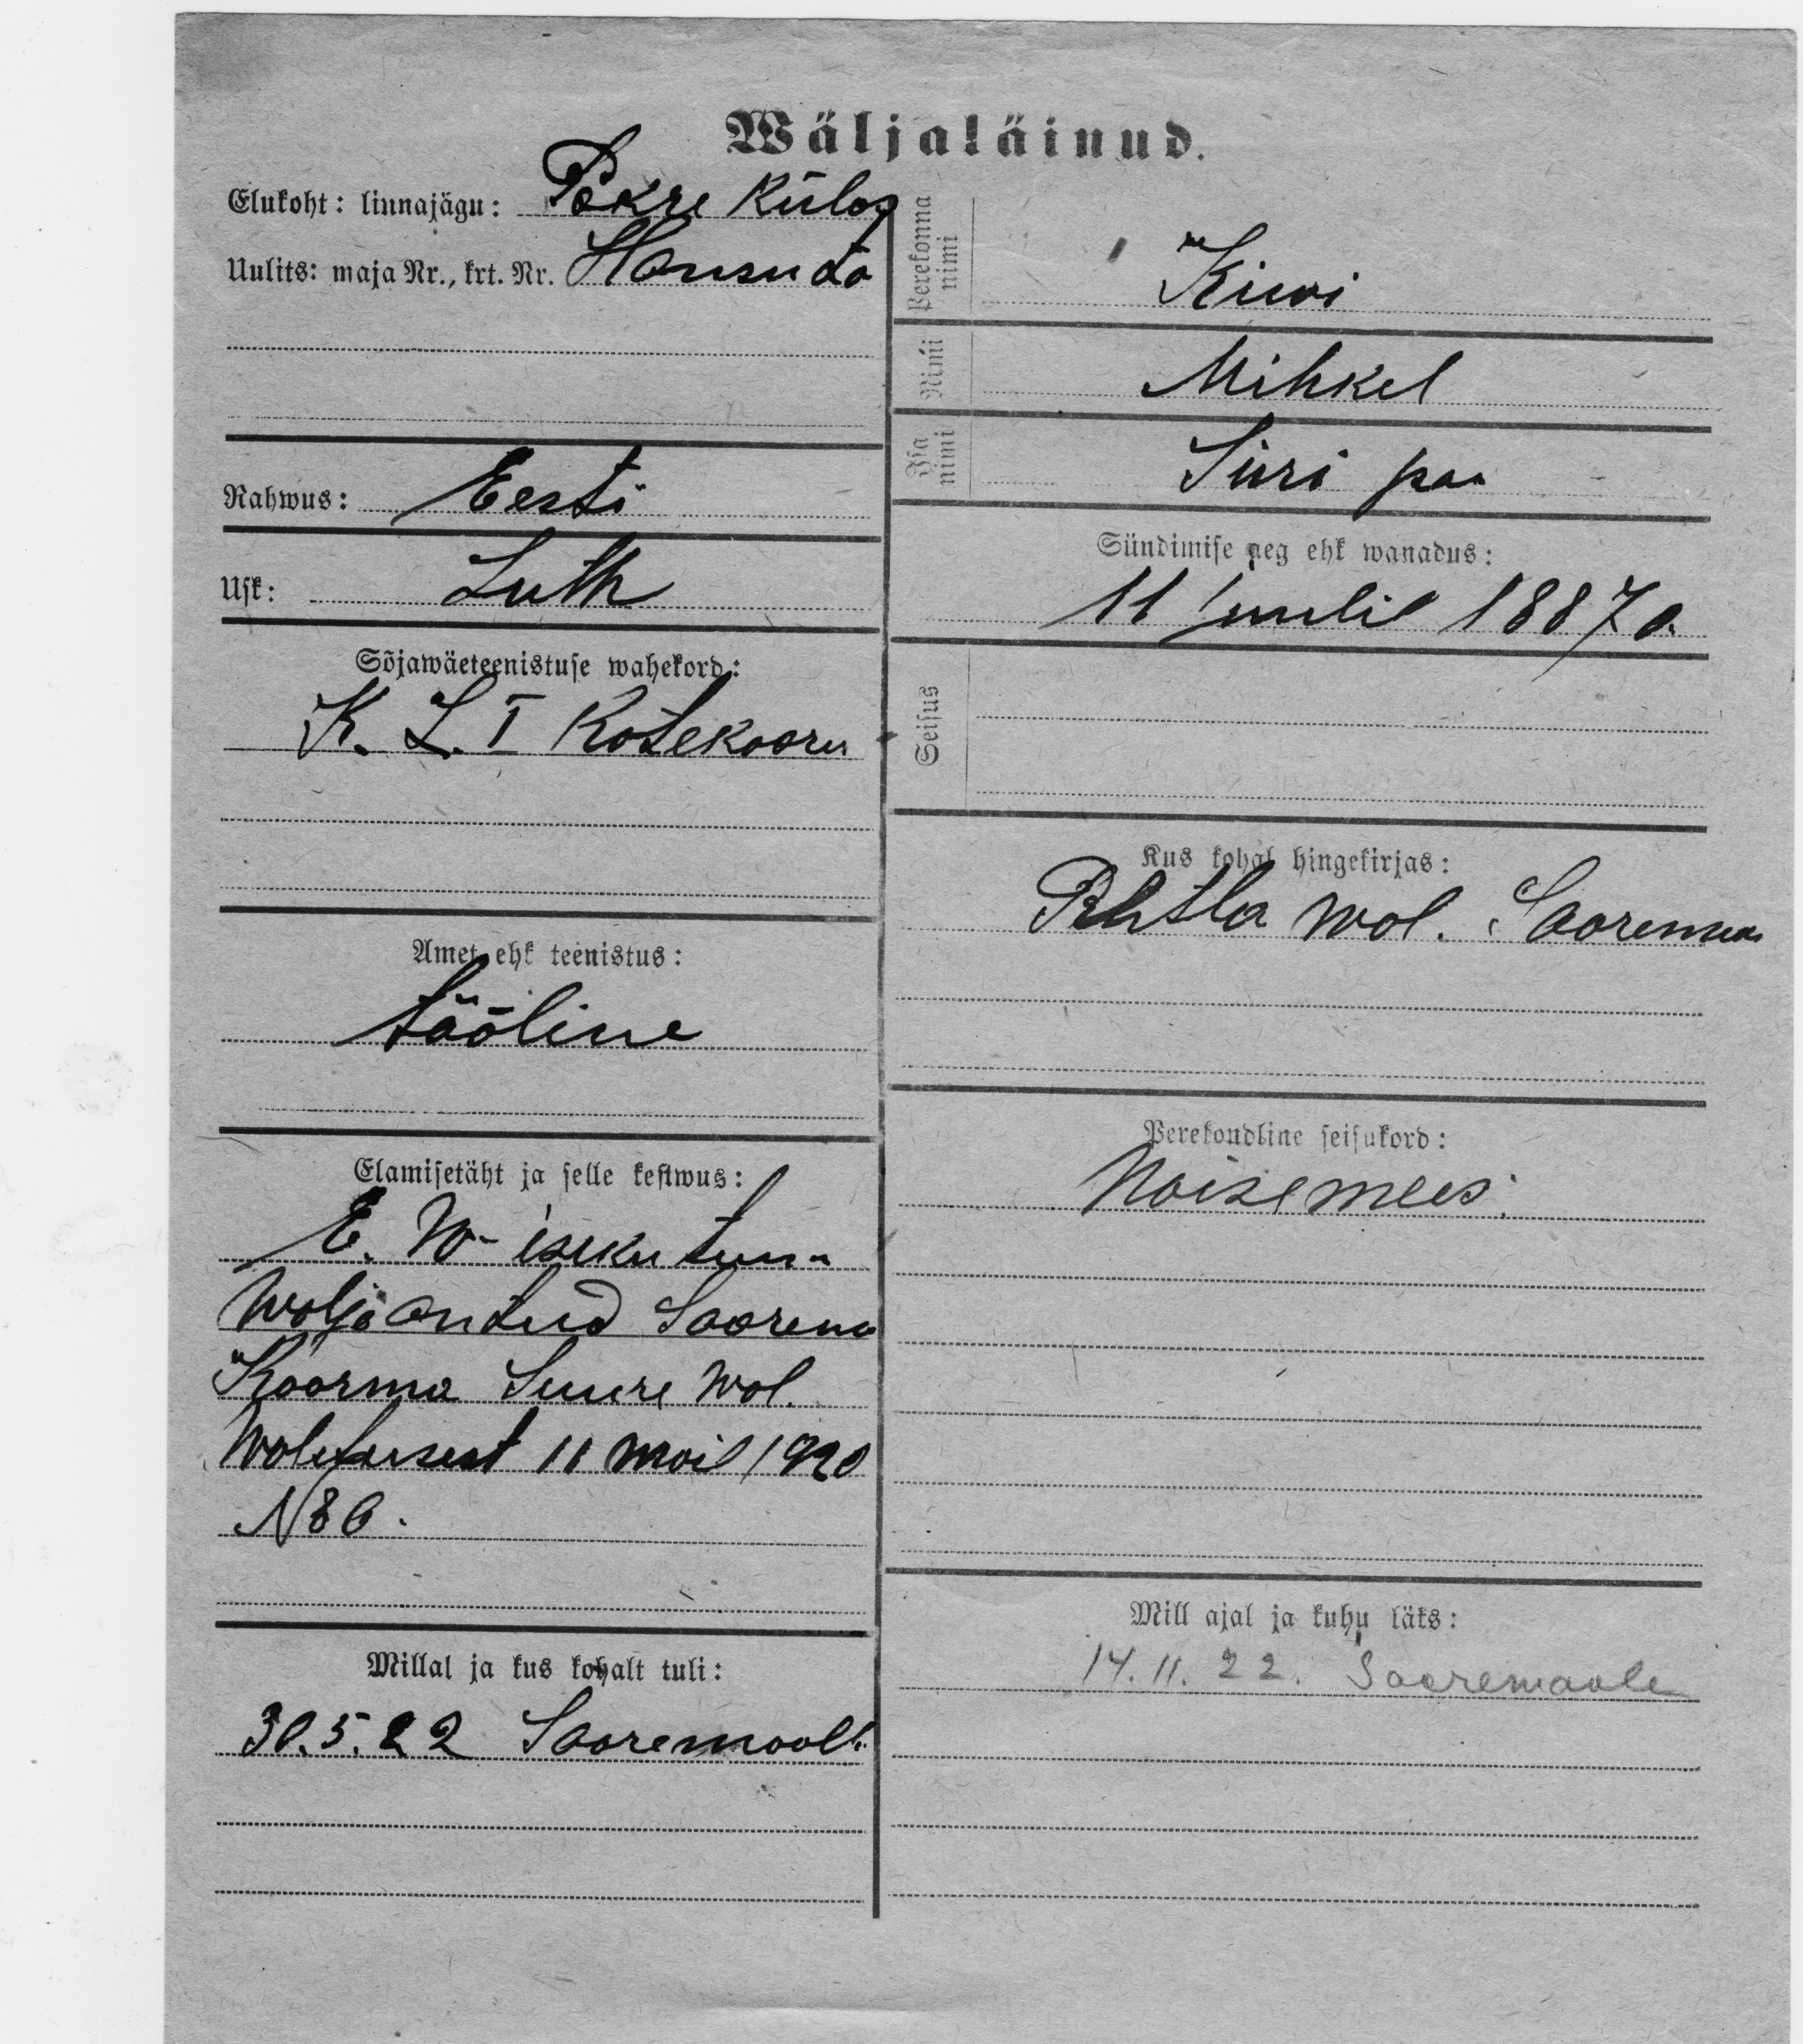 Wäljaläinud.
Elukoht: linnajägu: Pakre külas
Uulits: maja Nr., krt. Nr. Hansu ta
Rahwus: Eesti
Usk: Luth
Sõjawäeteenistuse wahekord:
K. L. I Kategooria
Amet ehk teenistus:
tööline
Elamisetäht ja selle kestwus:
E. W. isiku tun.
Wolja antud Saarema
Kaarma Suure wol.
11 mail 1920
N 80.
Millal ja kus kohalt tuli:
30.5.22 Saaremaalt.
Perekonna nimi
Kiwi
Nimi
Mihkel
Isa nimi
Siiri
Sündimise aeg ehk wanadus:
11 juulil 1887 a.
Seisus
Kus kohal hingekirjas:
Pihtla wol. Saaremaa
Perekondline seisukord:
Naisemees.
Mill ajal ja kuhu läks:
14. 11. 22. Saaremaale